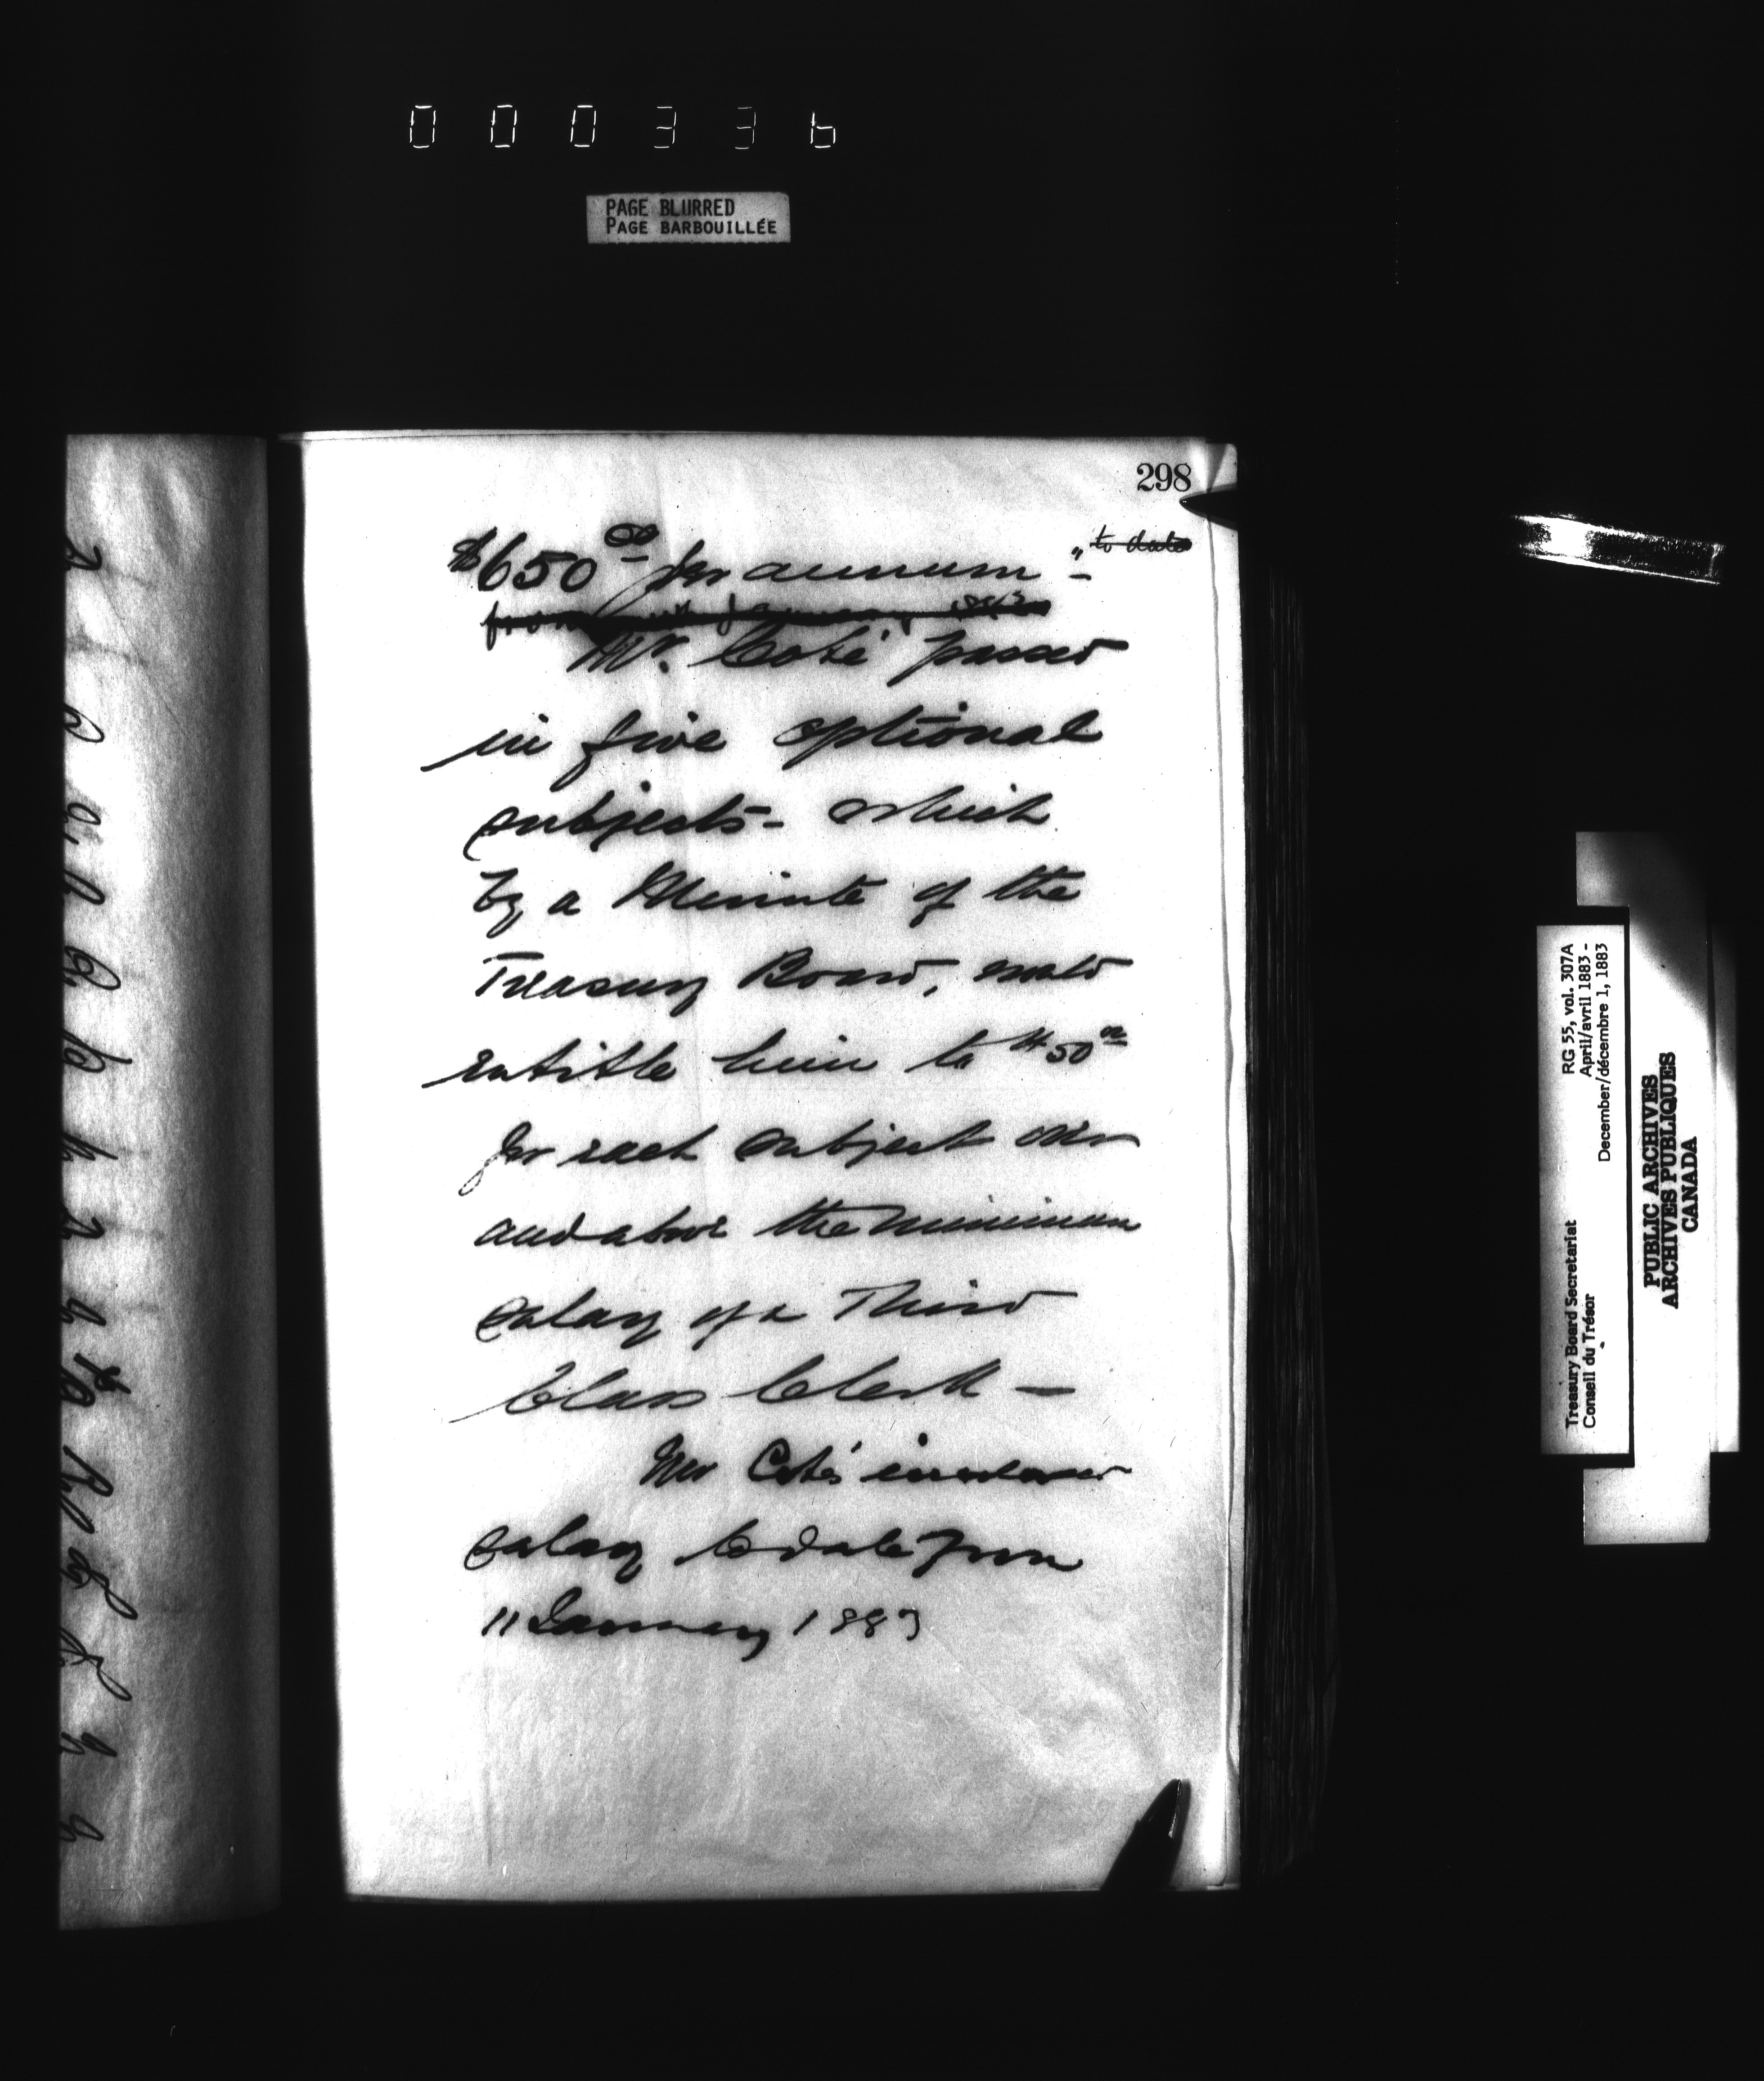 000336
PAGE BLURRED
PAGE BARBOUILLÉE
298
$650.00 per annum" - to date
from January 1883
Mr. Coté passed
in five optional
subjects - which
by a Minute of the
Treasury Board, would
entitle him to $50.00
for each subject over
and above the minimum
salary of a Third
Class Clerk —
Mr Coté's increased
salary to date from
11 January 1883
Treasury Board Secretariat RG 55, vol. 307A
Conseil du Trésor April/avril 1883 -
December/décembre 1, 1883
PUBLIC ARCHIVES
ARCHIVES PUBLIQUES
CANADA